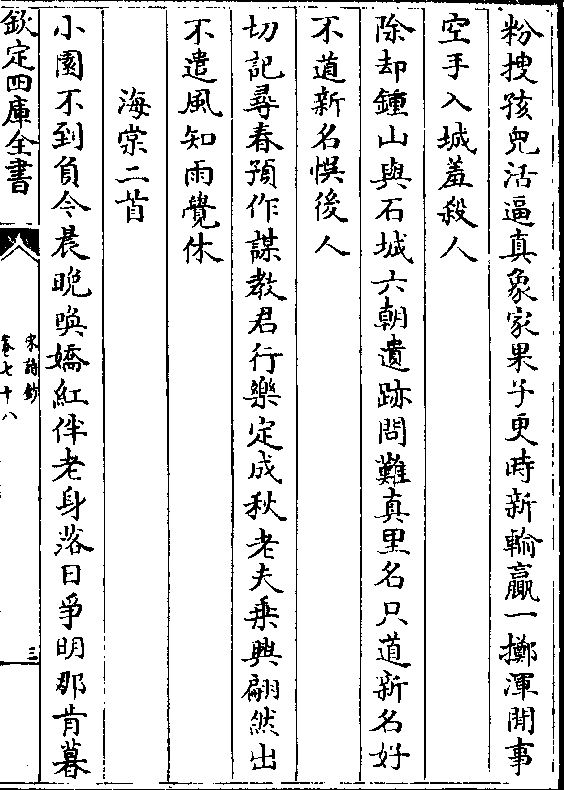 粉捜孩兒活逼真象家果子更時新輸贏一擲渾閒事
空手入城羞殺人
除却鍾山與石城六朝遺跡問難真里名只道新名好
不道新名悞後人
切記尋春預作謀教君行樂定成秋老夫乗興翩然出
不遣風知雨覺休
海棠二首
小園不到負今晨晩喚嬌紅伴老身落日爭明那肯暮
欽定四庫全書
宋詩鈔
卷七十八
三